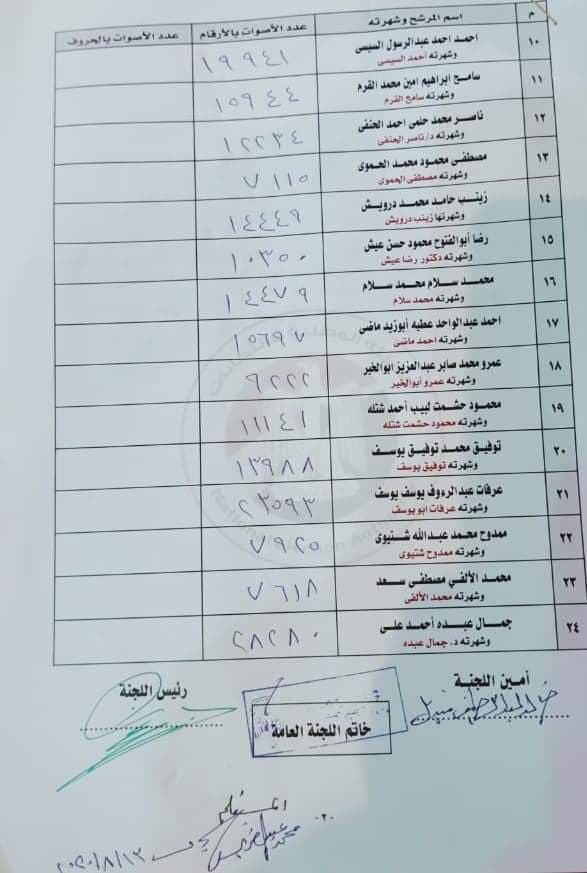 م	اسم المرشح وشهرته	عدد الأصوات بالأرقام	عدد الأصوات بالحروف
١٠	احمد احمد عبدالرسول السيسى	١٩٩٤١
وشهرته أحمد السيسى
١١	سامح ابراهيم امين محمد القرم	١٥٩٤٤
وشهرته سامح القرم
١٢	ناصر محمد حلمى احمد الحنفى	١٢٢٣٤
وشهرته د/ ناصر الحنفى
١٣	مصطفى محمود محمد الحموى	٧١١٥
وشهرته مصطفى الحموى
١٤	زينب حامد محمد درويش	١٤٤٤٩
وشهرتها زينب درويش
١٥	رضا أبوالفتوح محمود حسن عيش	١٠٣٥٠
وشهرته دكتور رضا عيش
١٦	محمد سلام محمد سلام	١٤٤٧٩
وشهرته محمد سلام
١٧	احمد عبدالواحد عطيه أبوزيد ماضى	١٥٦٩٧
وشهرته احمد ماضى
١٨	عمرو محمد صابر عبدالعزيز ابوالخير	٩٢٢٢
وشهرته عمرو أبوالخير
١٩	محمود حشمت لبيب أحمد شتله	١١١٤١
وشهرته محمود حشمت شتله
٢٠	توفيق محمد توفيق يوسف	١٣٩٨٨
وشهرته توفيق يوسف
٢١	عرفات عبدالرءوف يوسف يوسف	٢٣٥٩٣
وشهرته عرفات ابو يوسف
٢٢	ممدوح محمد عبدالله شتيوى	٧٩٢٥
وشهرته ممدوح شتيوى
٢٣	محمد الألفي مصطفى سعد	٧٦١٨
وشهرته محمد الألفى
٢٤	جمال عبده أحمد على	٢٨٢٨٠
وشهرته د. جمال عبده
أمين اللجنة
رئيس اللجنة
خاتم اللجنة العامة
-٢٠-
٢٠٢٠/٨/١٣